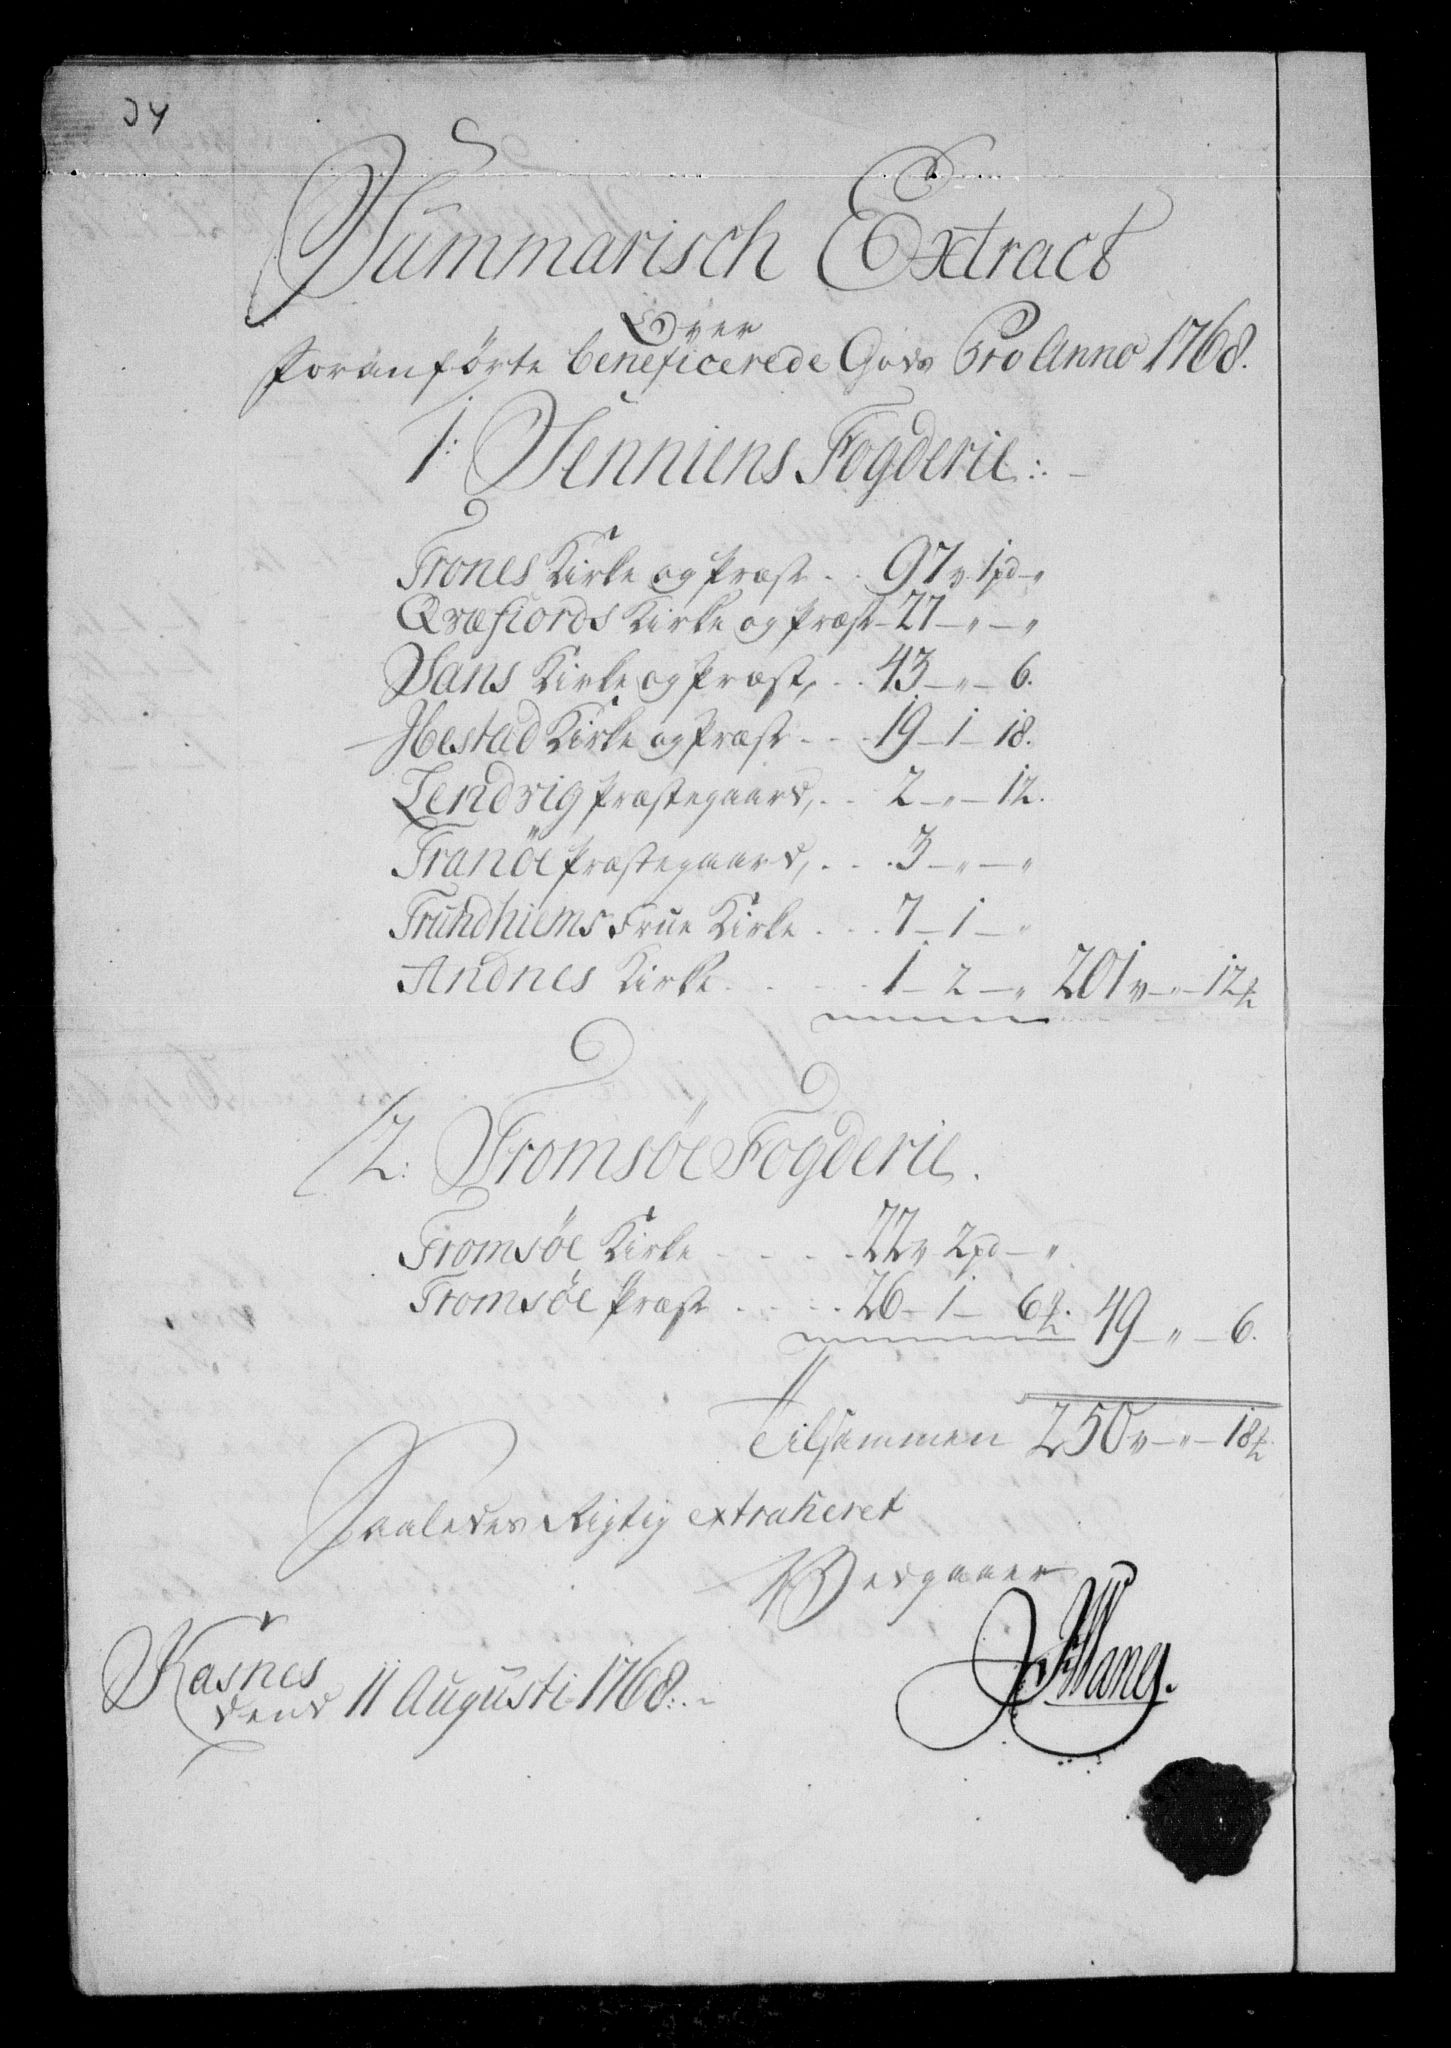 34
Summarisch Extract
Over
foranførte beneficerede Gods Pro Anno 1768.
1: Senniens Fogderie:
Trones Kirke og Præst . . 97 v 1 pd - "
Qvæfiords Kirke og Præst - 27 - " - "
Sans Kirke og Præst, . . 43 - " - 6.
Ibestad Kirke og Præst - . . 19 - 1 - 18.
Lendvig Præstegaard, . . 2 - " - 12.
Tranöe Præstegaard, . . . 3 - " - "
Trundhiems Frue Kirke . . . 7 - 1 - "
Andnes Kirke . . . . 1 - 2 - " 201 v - " - 12 ½
2: Tromsöe Fogderie.
Tromsöe Kirke . . . . 22 v 2 pd - "
Tromsöe Præst . . . . 26 - 1 - 6 ½. 49 - " - 6.
Tilsammen 250 v - " - 18 ½
Saaledes Rigtig extraheret
Kasnes
dend 11 Augusti 1768.